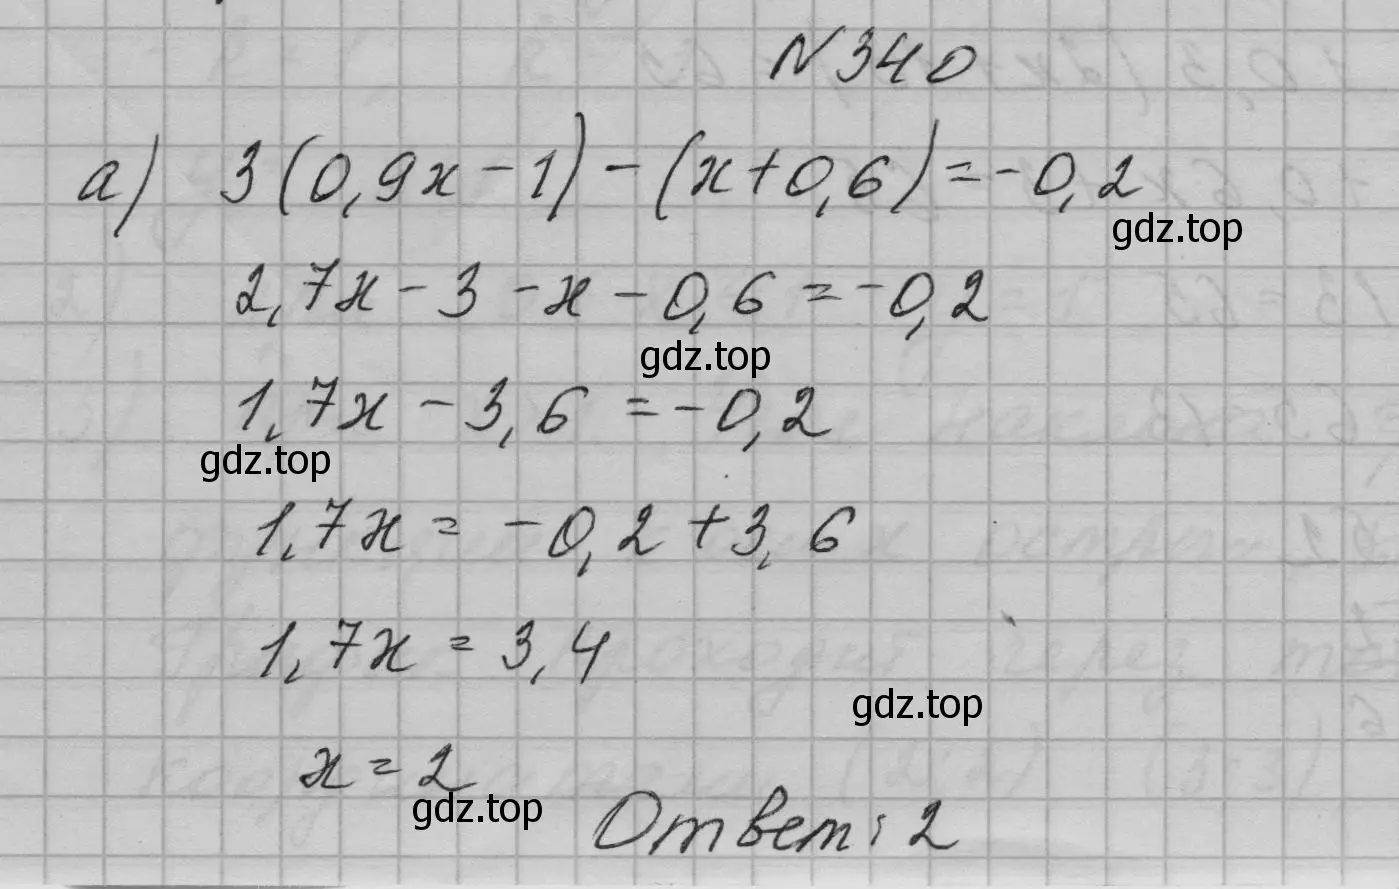 N 340
а) 3(0,9x-1)-(x+0,6)=-0,2
gdz.top
2,7x-3-x-0,6=-0,2
gdz.top
1,7x-3,6=-0,2
gdz.top
1,7x=-0,2+3,6
1,7x=3,4
gdz.top
x=2
gdz.top
Ответ: 2